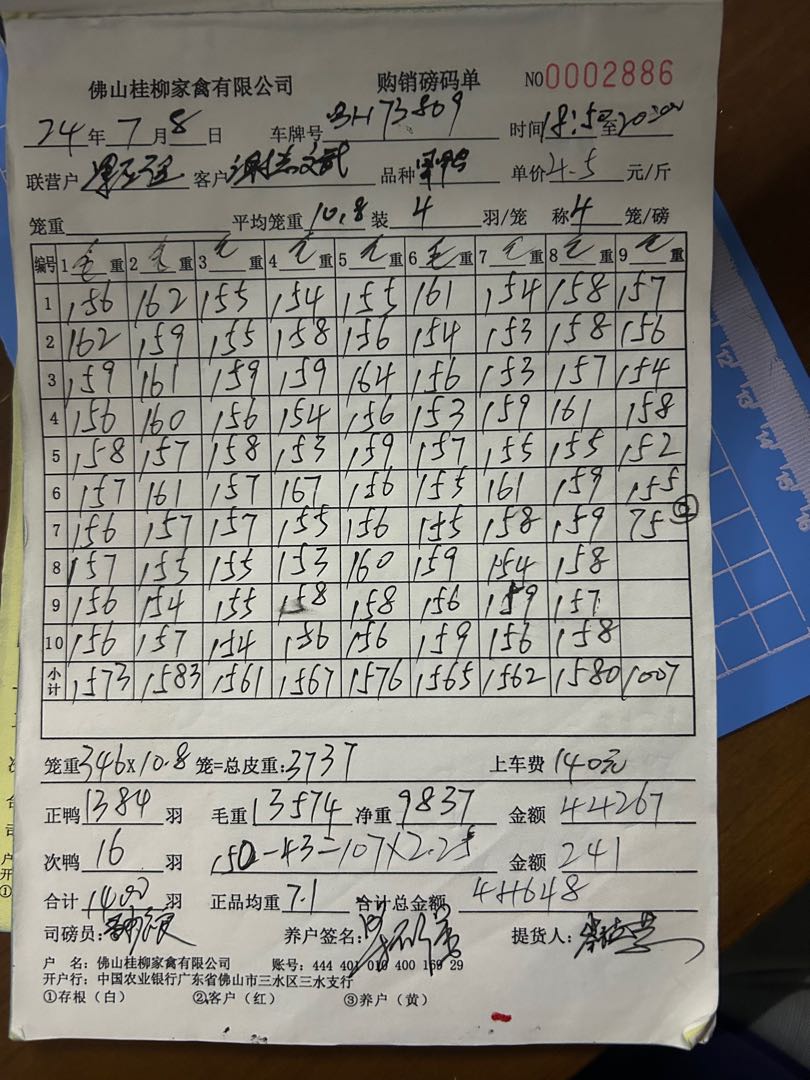 佛山桂柳家禽有限公司 购销磅码单 NO0002886
24年7月8日 车牌号 3H73809 时间18:50至20:00
联营户 客户 品种 单价4.5元/斤
笼重 平均笼重10.8 装4羽/笼 称4笼/磅
编号 1毛重 2毛重 3毛重 4毛重 5毛重 6毛重 7毛重 8毛重 9毛重
1 156 162 155 154 155 161 154 158 157
2 162 159 155 158 156 154 153 158 156
3 159 161 159 159 164 156 153 157 154
4 156 160 156 154 156 153 159 161 158
5 158 157 158 153 159 157 155 155 152
6 157 161 157 167 156 155 161 159 155
7 156 157 157 155 156 155 158 159 75 ②
8 157 155 155 153 160 159 154 158
9 156 154 155 158 158 156 159 157
10 156 157 154 156 156 159 156 158
小计 1573 1583 1561 1567 1576 1565 1562 1580 1007
笼重346×10.8笼=总皮重:3737 上车费140元
正鸭1384羽 毛重13574 净重9837 金额44267
次鸭16羽 150-43=107×2.25 金额241
合计1400羽 正品均重7.1 合计总金额44648
司磅员: 养户签名: 提货人:
户 名:佛山桂柳家禽有限公司 账号:444 401 010 400 169 29
开户行:中国农业银行广东省佛山市三水区三水支行
①存根(白) ②客户(红) ③养户(黄)